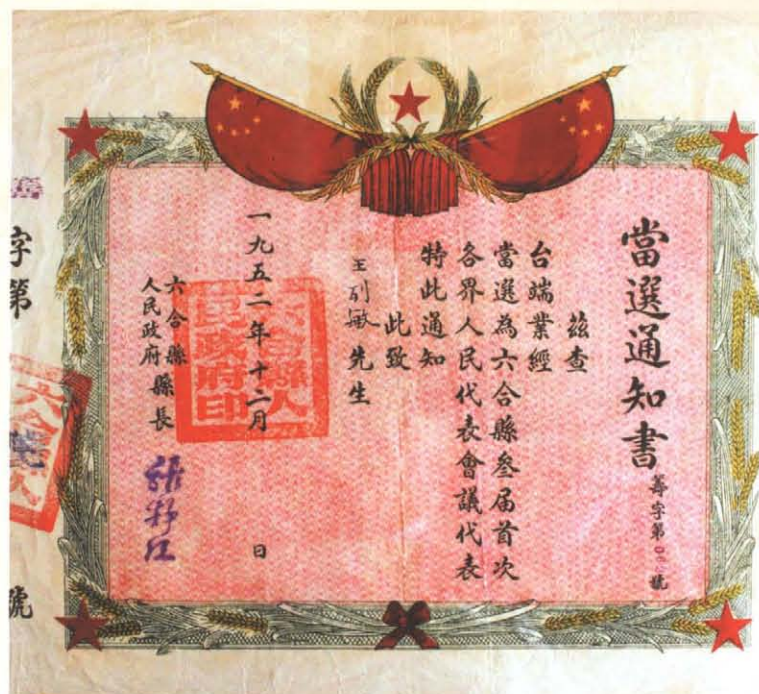 當選通知書
籌字第 號
茲查
台端業經
當選為六合縣叁届首次
各界人民代表會議代表
特此通知
此致
王 敏先生
一九五二年十二月 日
六合縣
人民政府縣長
六合縣人民政府印
字第 號
六合縣人